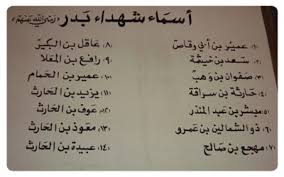 أسماء شهداء بدر (رضي الله عنهم)
١. عمير بن أبي وقاص
٢. سعد بن خيثمة
٣. صفوان بن وهب
٤. حارثة بن سراقة
٥. مبشر بن عبد المنذر
٦. ذو الشمالين بن عمرو
٧. مهجع بن صالح
٨. عاقل بن البكير
٩. رافع بن المعلا
١٠. عمير بن الحمام
١١. يزيد بن الحارث
١٢. عوف بن الحارث
١٣. معوذ بن الحارث
١٤. عبيدة بن الحارث